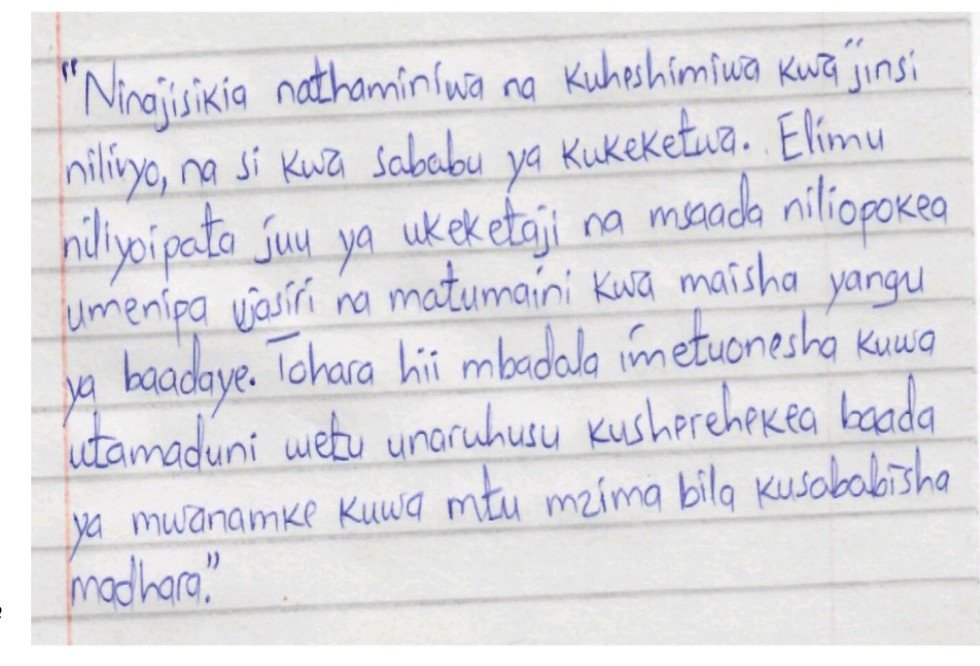 "Ninajisikia nathaminiwa na kuheshimiwa kwa "jinsi
nilivyo, na si kwa sababu ya kukeketwa. Elimu
niliyoipata juu ya ukeketaji na msaada niliopokea
umenipa ujasiri na matumaini kwa maisha yangu
ya baadaye. Tohara hii mbadala imetuonesha kuwa
utamaduni wetu unaruhusu kusherehekea baada
ya mwanamke kuwa mtu mzima bila kusababisha
madhara."